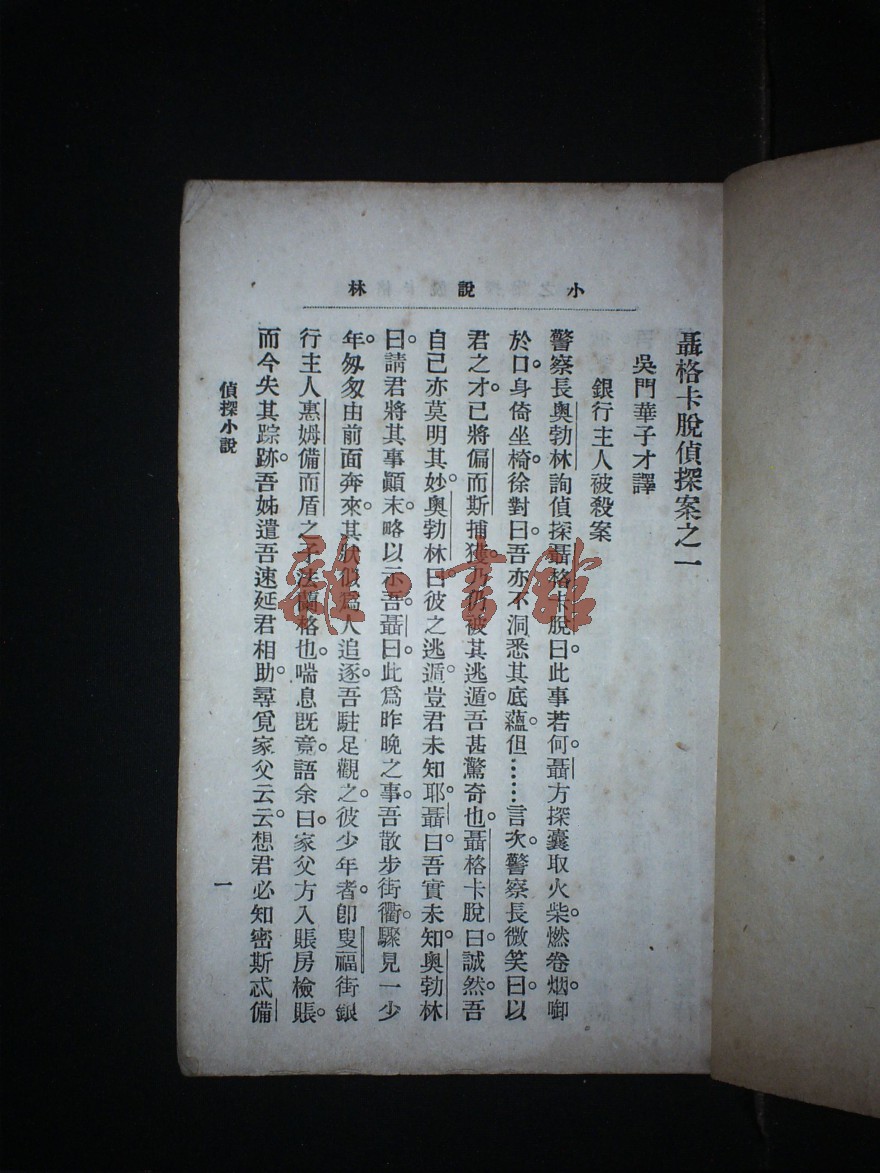 小說林
聶格卡脫偵探案之一
吳門華子才譯
銀行主人被殺案
警察長奧勃林詢偵探聶格卡脫曰此事若何。聶方探囊取火柴。燃卷烟。啣
於口。身倚坐椅。徐對曰。吾亦不洞悉其底蘊。但……言次。警察長微笑曰。以
君之才。已將偏而斯捕獲。乃仍被其逃遁。吾甚驚奇也。聶格卡脫曰。誠然。吾
自己亦莫明其妙。奧勃林曰。彼之逃遁。豈君未知耶。聶曰。吾實未知。奧勃林
曰。請君將其事顚末。略以示吾。聶曰。此爲昨晚之事。吾散步街衢。驟見一少
年。匆匆由前面奔來。其狀似爲人追逐。吾駐足觀之。彼少年者。卽叟福街銀
行主人惠姆備而盾之子法蘭格也。喘息旣竟。語余曰。家父方入賬房檢賬。
而今失其踪跡。吾姊遣吾速延君相助。尋覓家父云云。想君必知密斯忒備
偵探小說
一
雜·書館